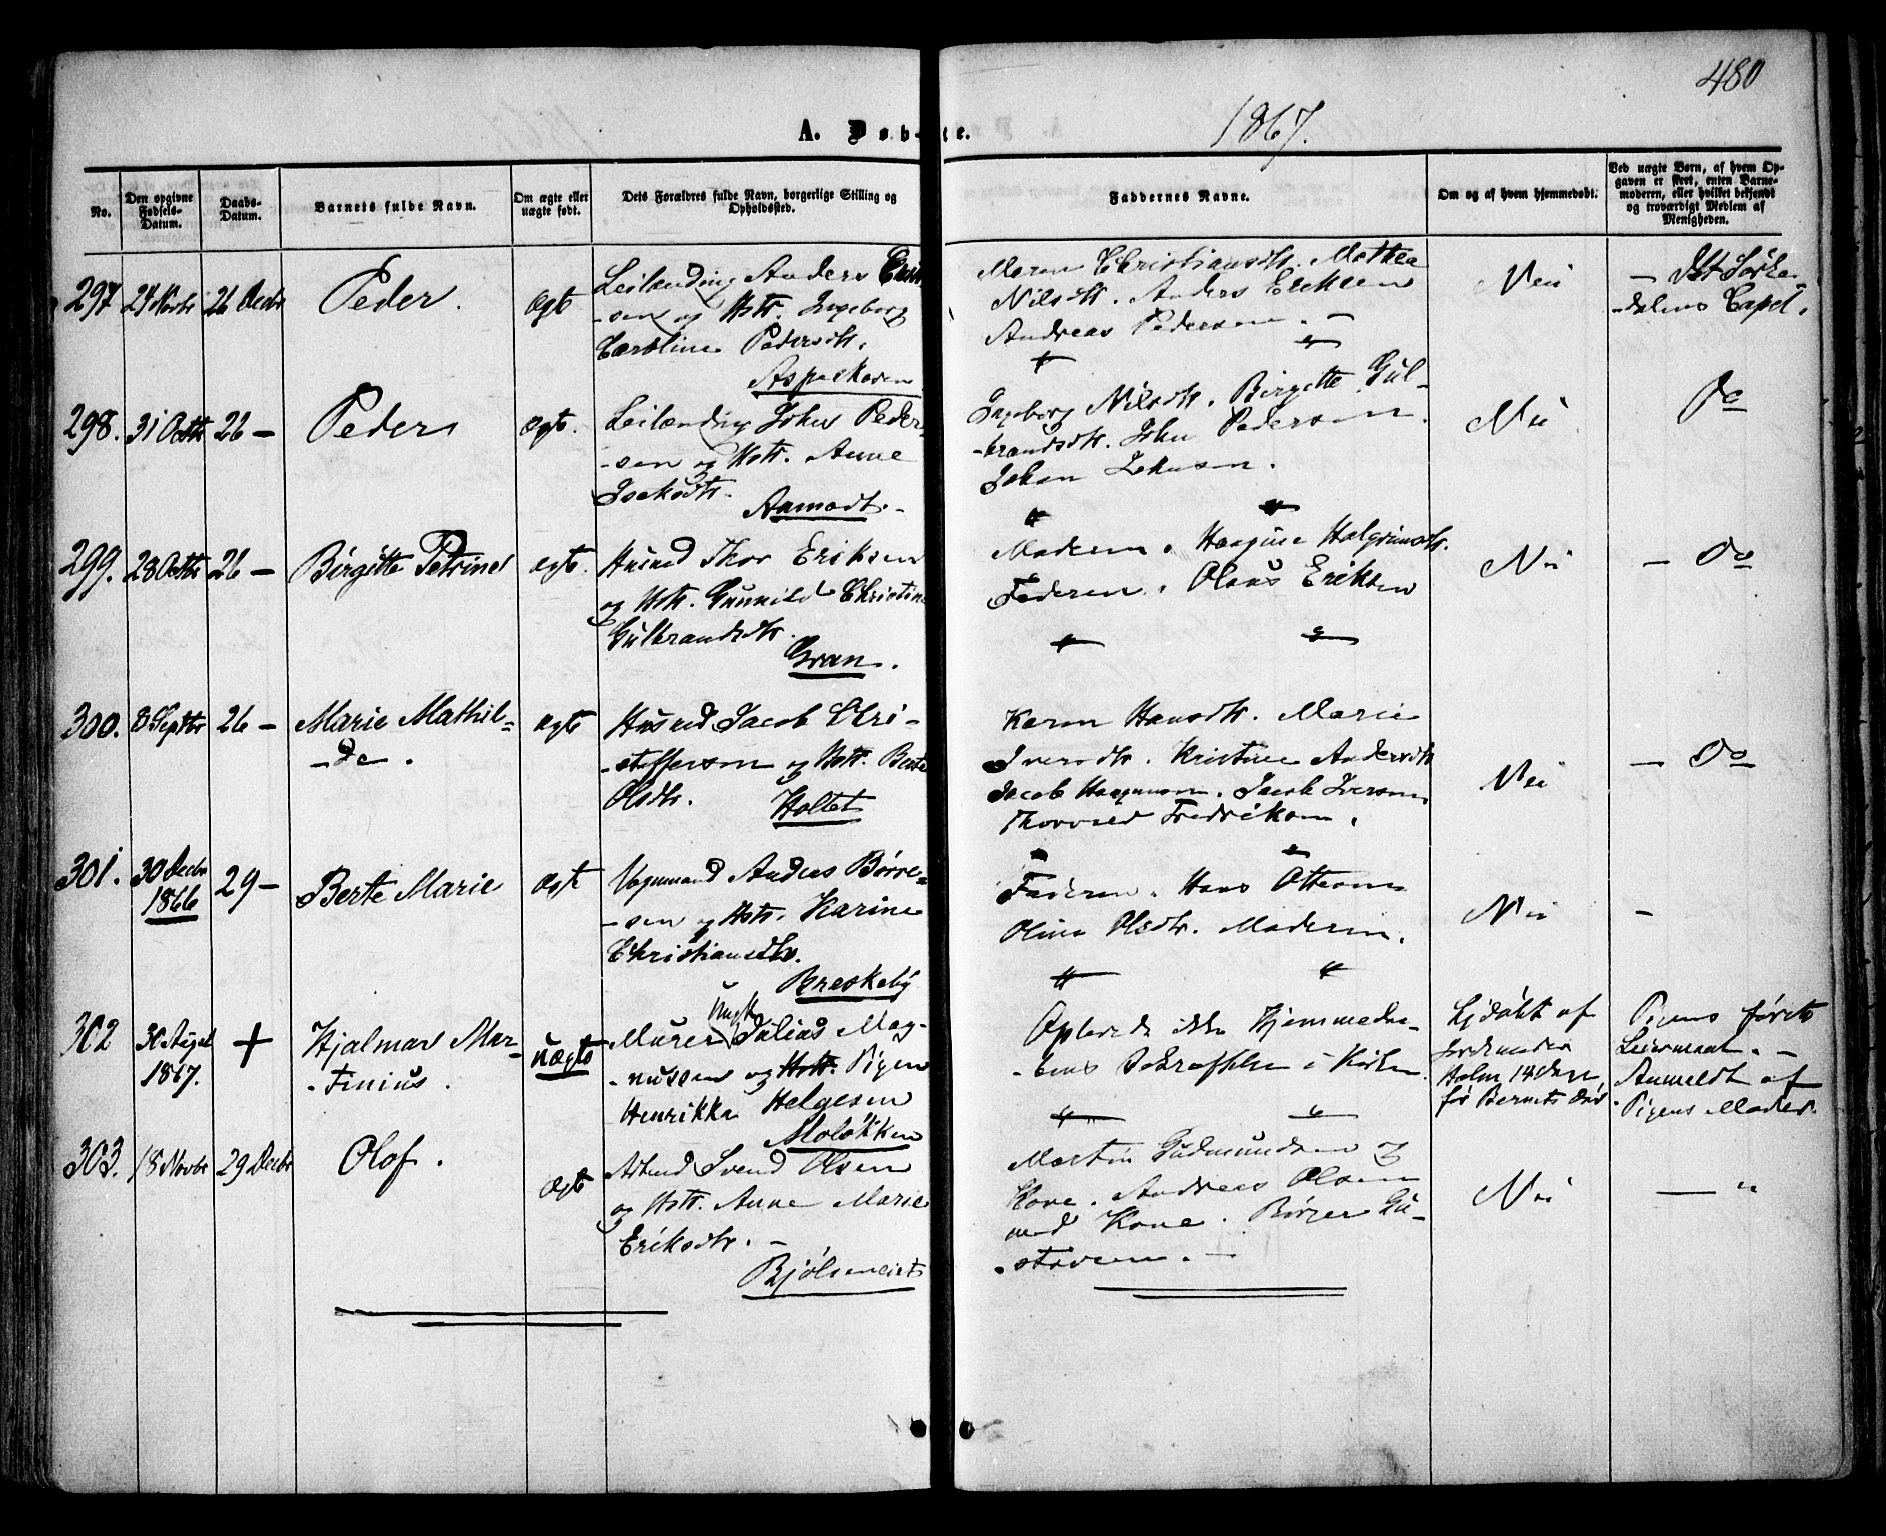 480
A. Døbte.
1867.
No.
Den opgivne Fødsels-Datum.
Daabs-Datum.
Barnets fulde Navn.
Om ægte eller uægte født.
Dets Forældres fulde Navn, borgerlige Stilling og Opholdssted.
Faddernes Navne.
Om og af hvem hjemmedøbt.
Ved uægte Børn, af hvem Opgaven er skeet, enten Barnemoderen, eller hvilket bekjendt og troværdigt Medlem af Menigheden.
297
26 Decbr
Peder.
ægte
Leilænding Anders
-sen og Hstr. Ingeborg
Caroline Pedersdtr.
Aspeskoven
Maren Christiansdtr. Mathea
Nilsdtr. Anders Eriksen
Andreas Pedersen. -
Nei
- Sørke-
-dalens Capel.
298.
31 Octbr
26 -
Peder
ægte.
Leilænding Johns Peder-
-sen og Hstr. Anne
Isaksdtr.
Aamodt. -
Ingeborg Nilsdtr. Birgitte Gul-
-brandsdtr. John Pedersen.
Johan Johnsen.
Nei
Do
299.
28 Octbr
26 -
Birgitte Petrine
ægte.
Husmd Thor Eriksen
og Hstr. Gunild Christine
Gulbrandsdtr.
Gran.
Moderen. Haagine Halgrimsdtr.
Faderen. Olaus Eriksen
Nei
- Do
300.
8 Septbr
26 -
Marie Mathil-
-de.
ægte
Husmd Jacob Chri-
-stoffersen og Hstr. Berte
Olsdtr.
Holtet
Karen Hansdtr. Marie
Iversdtr. Kristine Andersdtr
Jacob Haagensen. Jacob Iversen
Thorvald Fredriksen.
Nei
- Do
301.
30 Decbr
1866
29 -
Berte Marie
ægte
Vognmand Anders Børre-
-sen og Hstr. Karine
Christiansdtr.
Breskeby
Faderen. Hans Ottesen
Olina Olsdtr. Moderen.
Nei
-
302
30 August
1867.
+
Hjalmar Mar-
-tinius.
uægte
Ungk
Murer Julius Mag-
-nussen og Hstr. Pigen
Henrikka Helgesen
Moløkken
Oplevede ikke Hjemmedaa-
-bens Bekræftelse i Kirken
Hjdøbt af
Jordemoder
Holm 14 Dage
før Barnets Død.
Pigens første
Leiermaal. -
Anmeldt af
Pigens Moder.
303.
18 Novbr
29 Decbr
Olof.
ægte
Arbmd Svend Olsen
og Hstr. Anne Marie
Eriksdtr. -
Bjølsen
Martin Gudmundsen og
Kone. Andreas Olsen
med Kone. Börger Gu-
-stavsen. -
Nei
- "